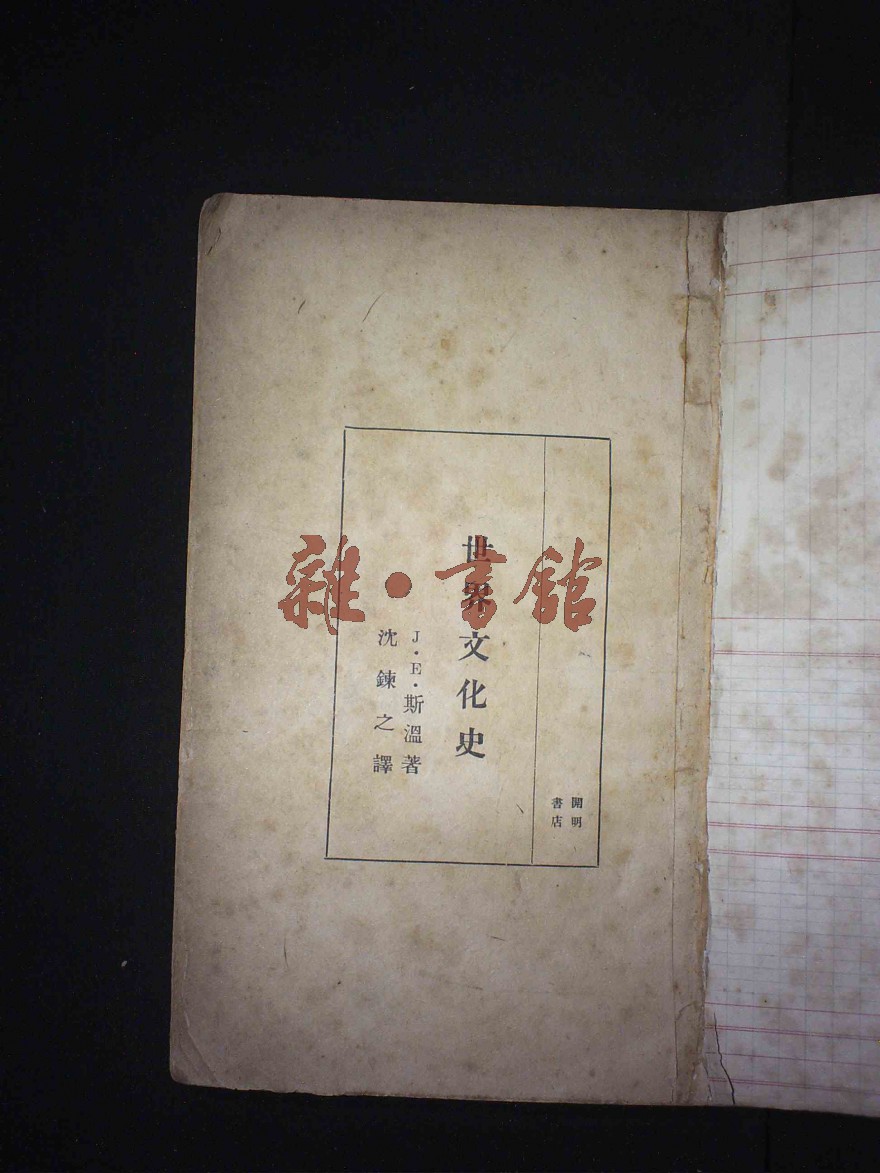 世界文化史
J・E・斯溫著
沈鍊之譯
開明
書店
雜・書館